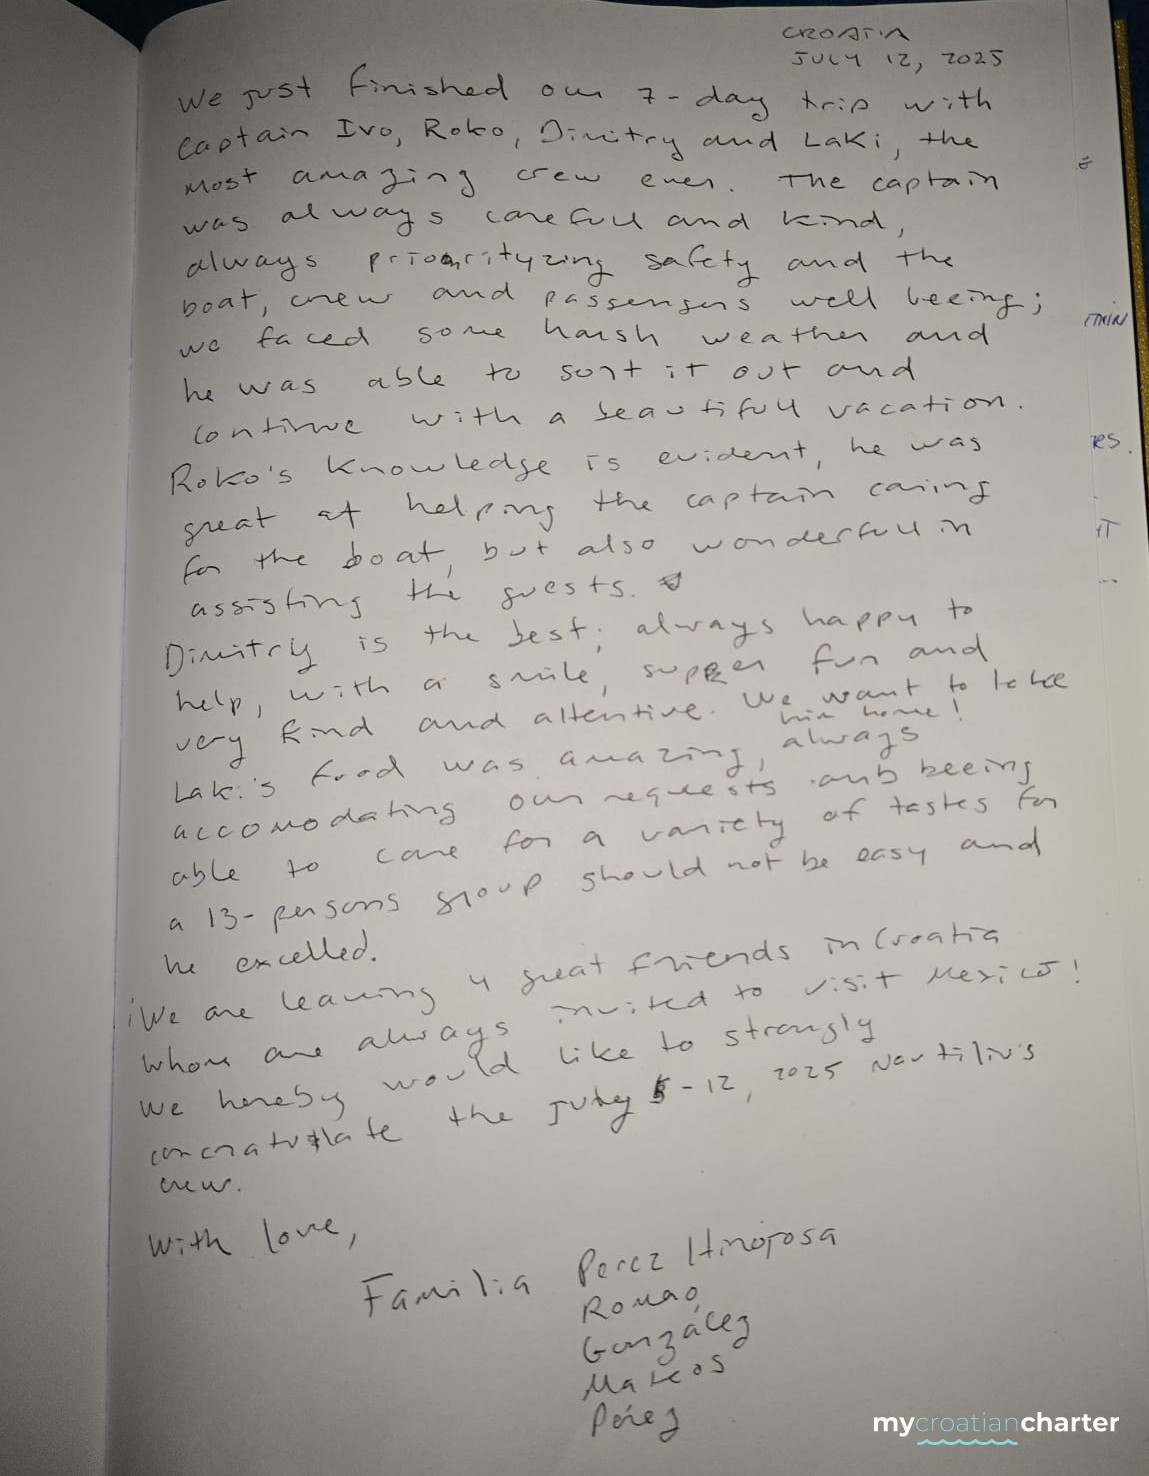 CROATIA
JULY 12, 2025
We just finished our 7-day trip with
captain Ivo, Roko, Dimitry and Laki, the
most amazing crew ever. The captain
was always carefull and kind,
always prioorityzing safety and the
boat, crew and passengers well beeing;
we faced some harsh weather and
he was able to sort it out and
continue with a beautifull vacation.
Roko's knowledge is evident, he was
great at helping the captain caring
for the boat, but also wonderfull in
assisting the guests.
Dimitry is the best; always happy to
help, with a smile, supper fun and
very kind and attentive. We want to take
him home!
Laki's food was amazing, always
accomodating our requests and beeing
able to care for a variety of tastes for
a 13-persons group should not be easy and
he excelled.
¡We are leaving 4 great friends in Croatia
whom are always invited to visit Mexico!
We hereby would like to strongly
congratulate the july 5-12, 2025 Nautiliu's
crew.
With love,
Familia Perez Hinojosa
Romao
González
Mateos
Pérez
É
RS.
IT
...
mycroatiancharter